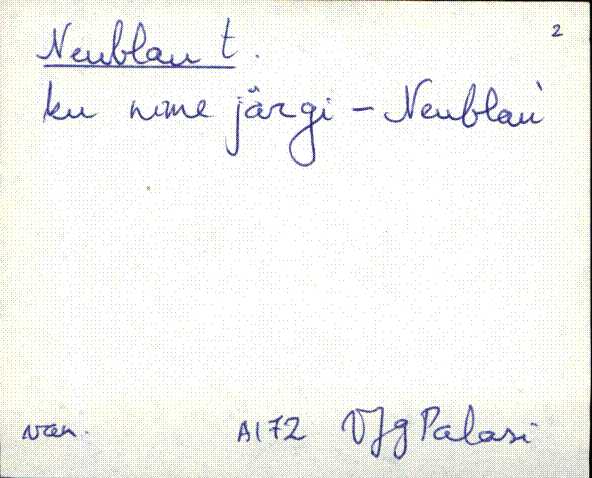 2
Neublau t.
ku nime järgi – Neublau
van. A172 VJg Palasi